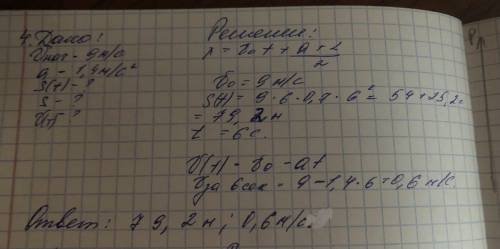 4. Дано:
Vнач - 9 м/с
a - 1,4 м/с²
S(t) - ?
S - ?
V(t) ?
Решение:
V₀t + at²/2
V₀ = 9 м/с
S(t) = 9 · 6 + 0,7 · 6² = 54 + 25,2 =
= 79,2 м
t = 6 с.
V(t) = V₀ - at
Vза 6 сек = 9 - 1,4 · 6 = 0,6 м/с
Ответ: 79,2 м; 0,6 м/с.